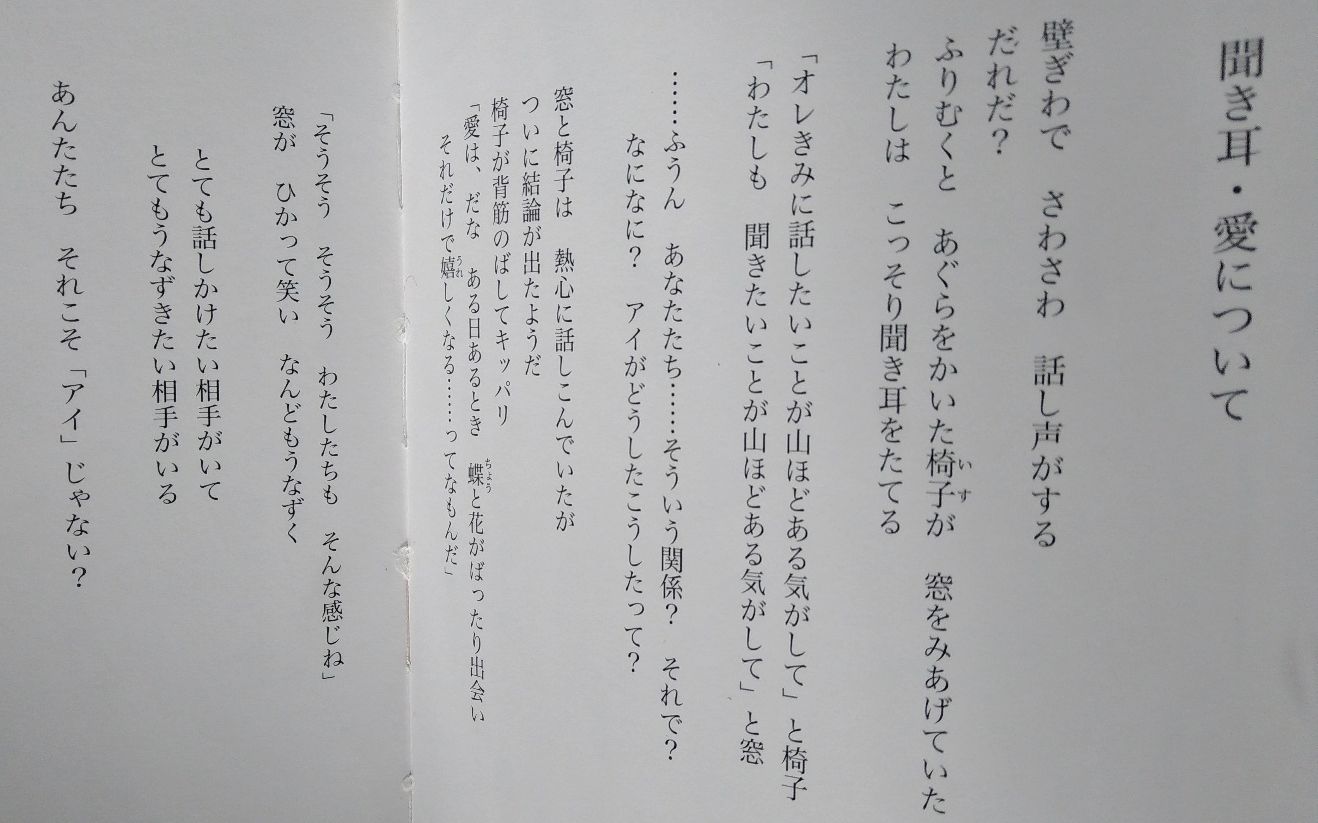 聞き耳・愛について
壁ぎわで　さわさわ　話し声がする
だれだ？
ふりむくと　あぐらをかいた椅子が　窓をみあげていた
いす
わたしは　こっそり聞き耳をたてる
「オレきみに話したいことが山ほどある気がして」と椅子
「わたしも　聞きたいことが山ほどある気がして」と窓
……ふうん　あなたたち……そういう関係？　それで？
なになに？　アイがどうしたこうしたって？
窓と椅子は　熱心に話しこんでいたが
ついに結論が出たようだ
椅子が背筋のばしてキッパリ
「愛は、だな　ある日あるとき　蝶と花がばったり出会い
ちょう
それだけで嬉しくなる……ってなもんだ」
うれ
「そうそう　そうそう　わたしたちも　そんな感じね」
窓が　ひかって笑い　なんどもうなずく
とても話しかけたい相手がいて
とてもうなずきたい相手がいる
あんたたち　それこそ「アイ」じゃない？